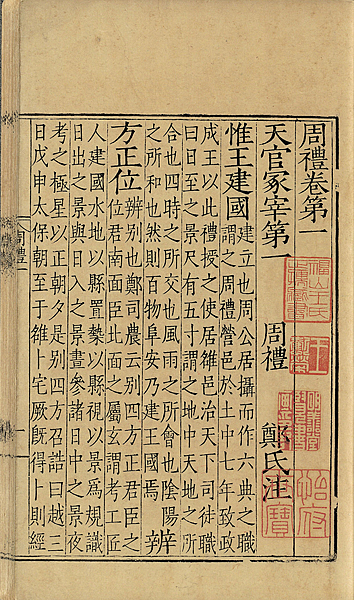 周禮卷第一
天官冢宰第一 周禮 鄭氏注
惟王建國 建立也周公居攝而作六典之職
謂之周禮營邑於土中七年致政
成王以此禮授之使居雒邑治天下司徒職
曰日至之景尺有五寸謂之地中天地之所
合也四時之所交也風雨之所會也陰陽
之所和也然則百物阜安乃建王國焉 辨
方正位 辨別也鄭司農云別四方正君臣之
位君南面臣北面之屬玄謂考工匠
人建國水地以縣置槷以縣視以景為規識
日出之景與日入之景晝參諸日中之景夜
考之極星以正朝夕是別四方召誥曰越三
日戊申太保朝至于雒卜宅厥旣得卜則經
周禮一